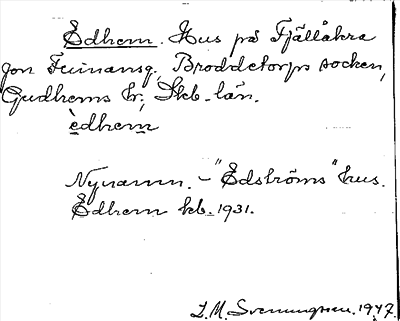 Edhem. Hus på Fjällåkra
Broddetorps socken,
Gudhems hr., Skb. län.
èdhem
Nynamn. - "Edströms" hus.
Edhem kb. 1931.
L. M. Svenungsson. 1947.